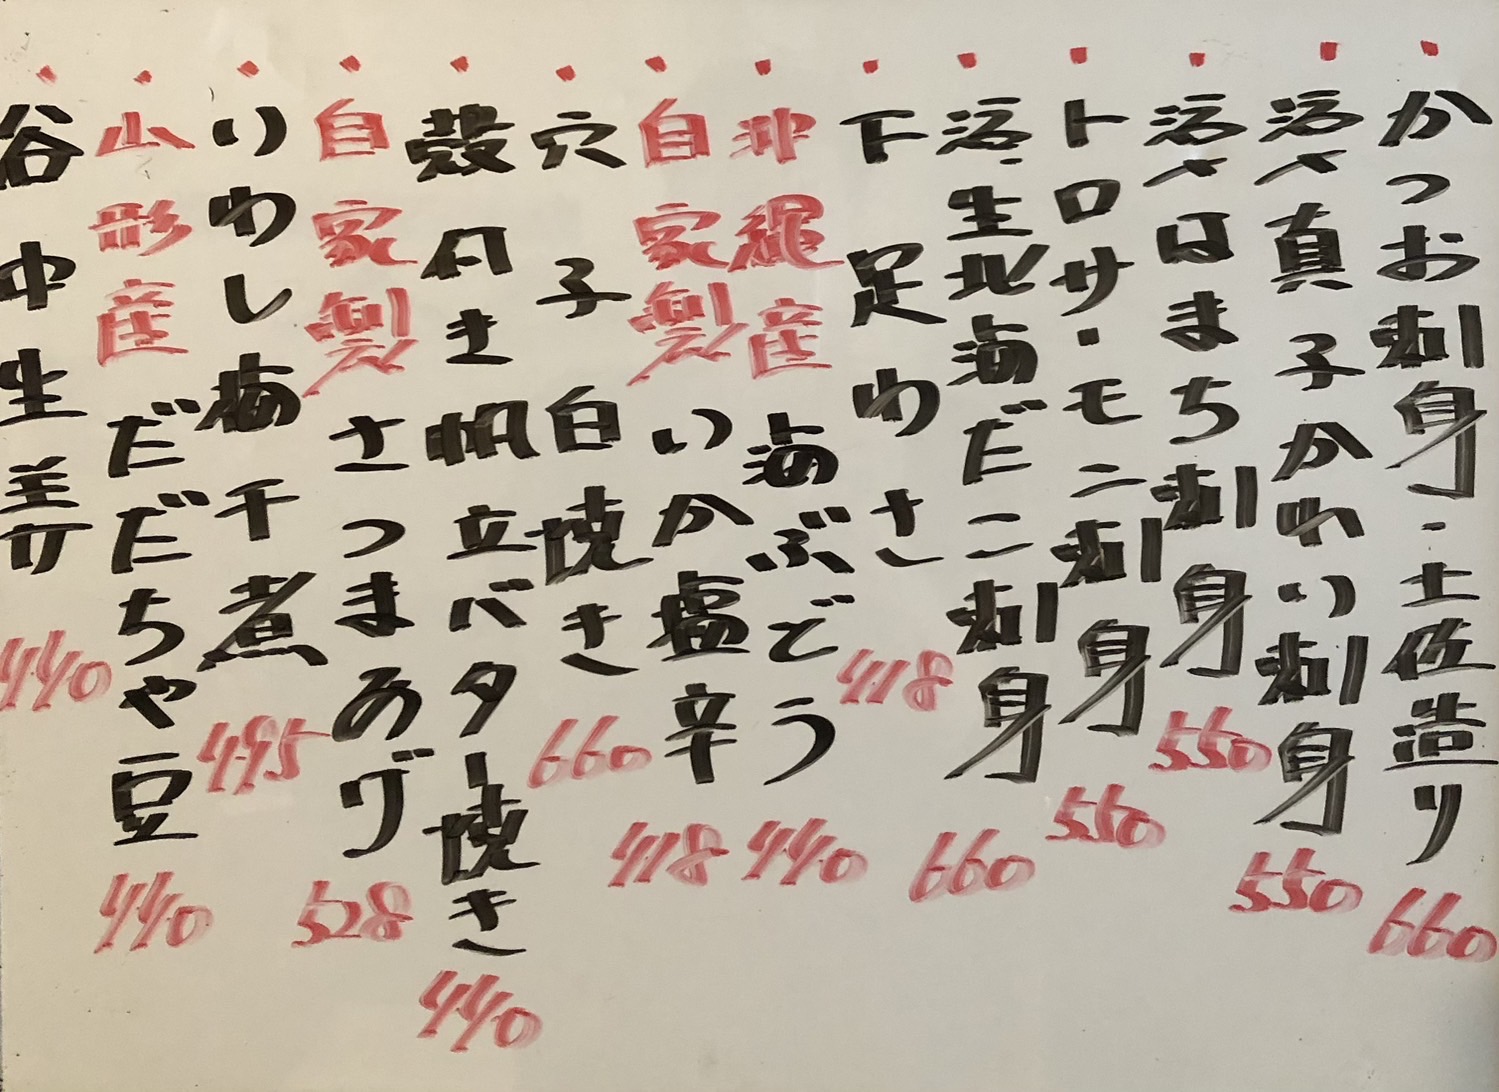 かつお刺身・土佐造り 660
活〆真子かれい刺身 550
活〆はまち刺身 550
トロサーモン刺身 550
活・生北海だこ刺身 660
下足わさ 418
沖縄産 海ぶどう 440
自家製 いか塩辛 418
穴子白焼き 660
殻付き帆立バター焼き 440
自家製 さつまあげ 528
いわし梅干煮 495
山形産 だだちゃ豆 440
谷中生姜 440